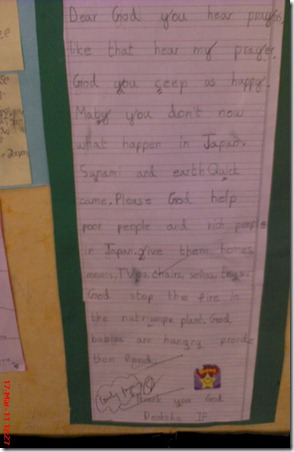 Dear God you hear prayer
like that hear my prayer.
God you ceep as happy.
Maby you don't now
what happen in Japan.
Sunami and earth Quick
came. Please God help
poor people and rich people
in Japan. give them homes
money, TV, chairs, sofas, toys.
God stop the fire in
the plant. God
babies are hungry provide
them food.
thank you God
17. Mar. 11 10:27